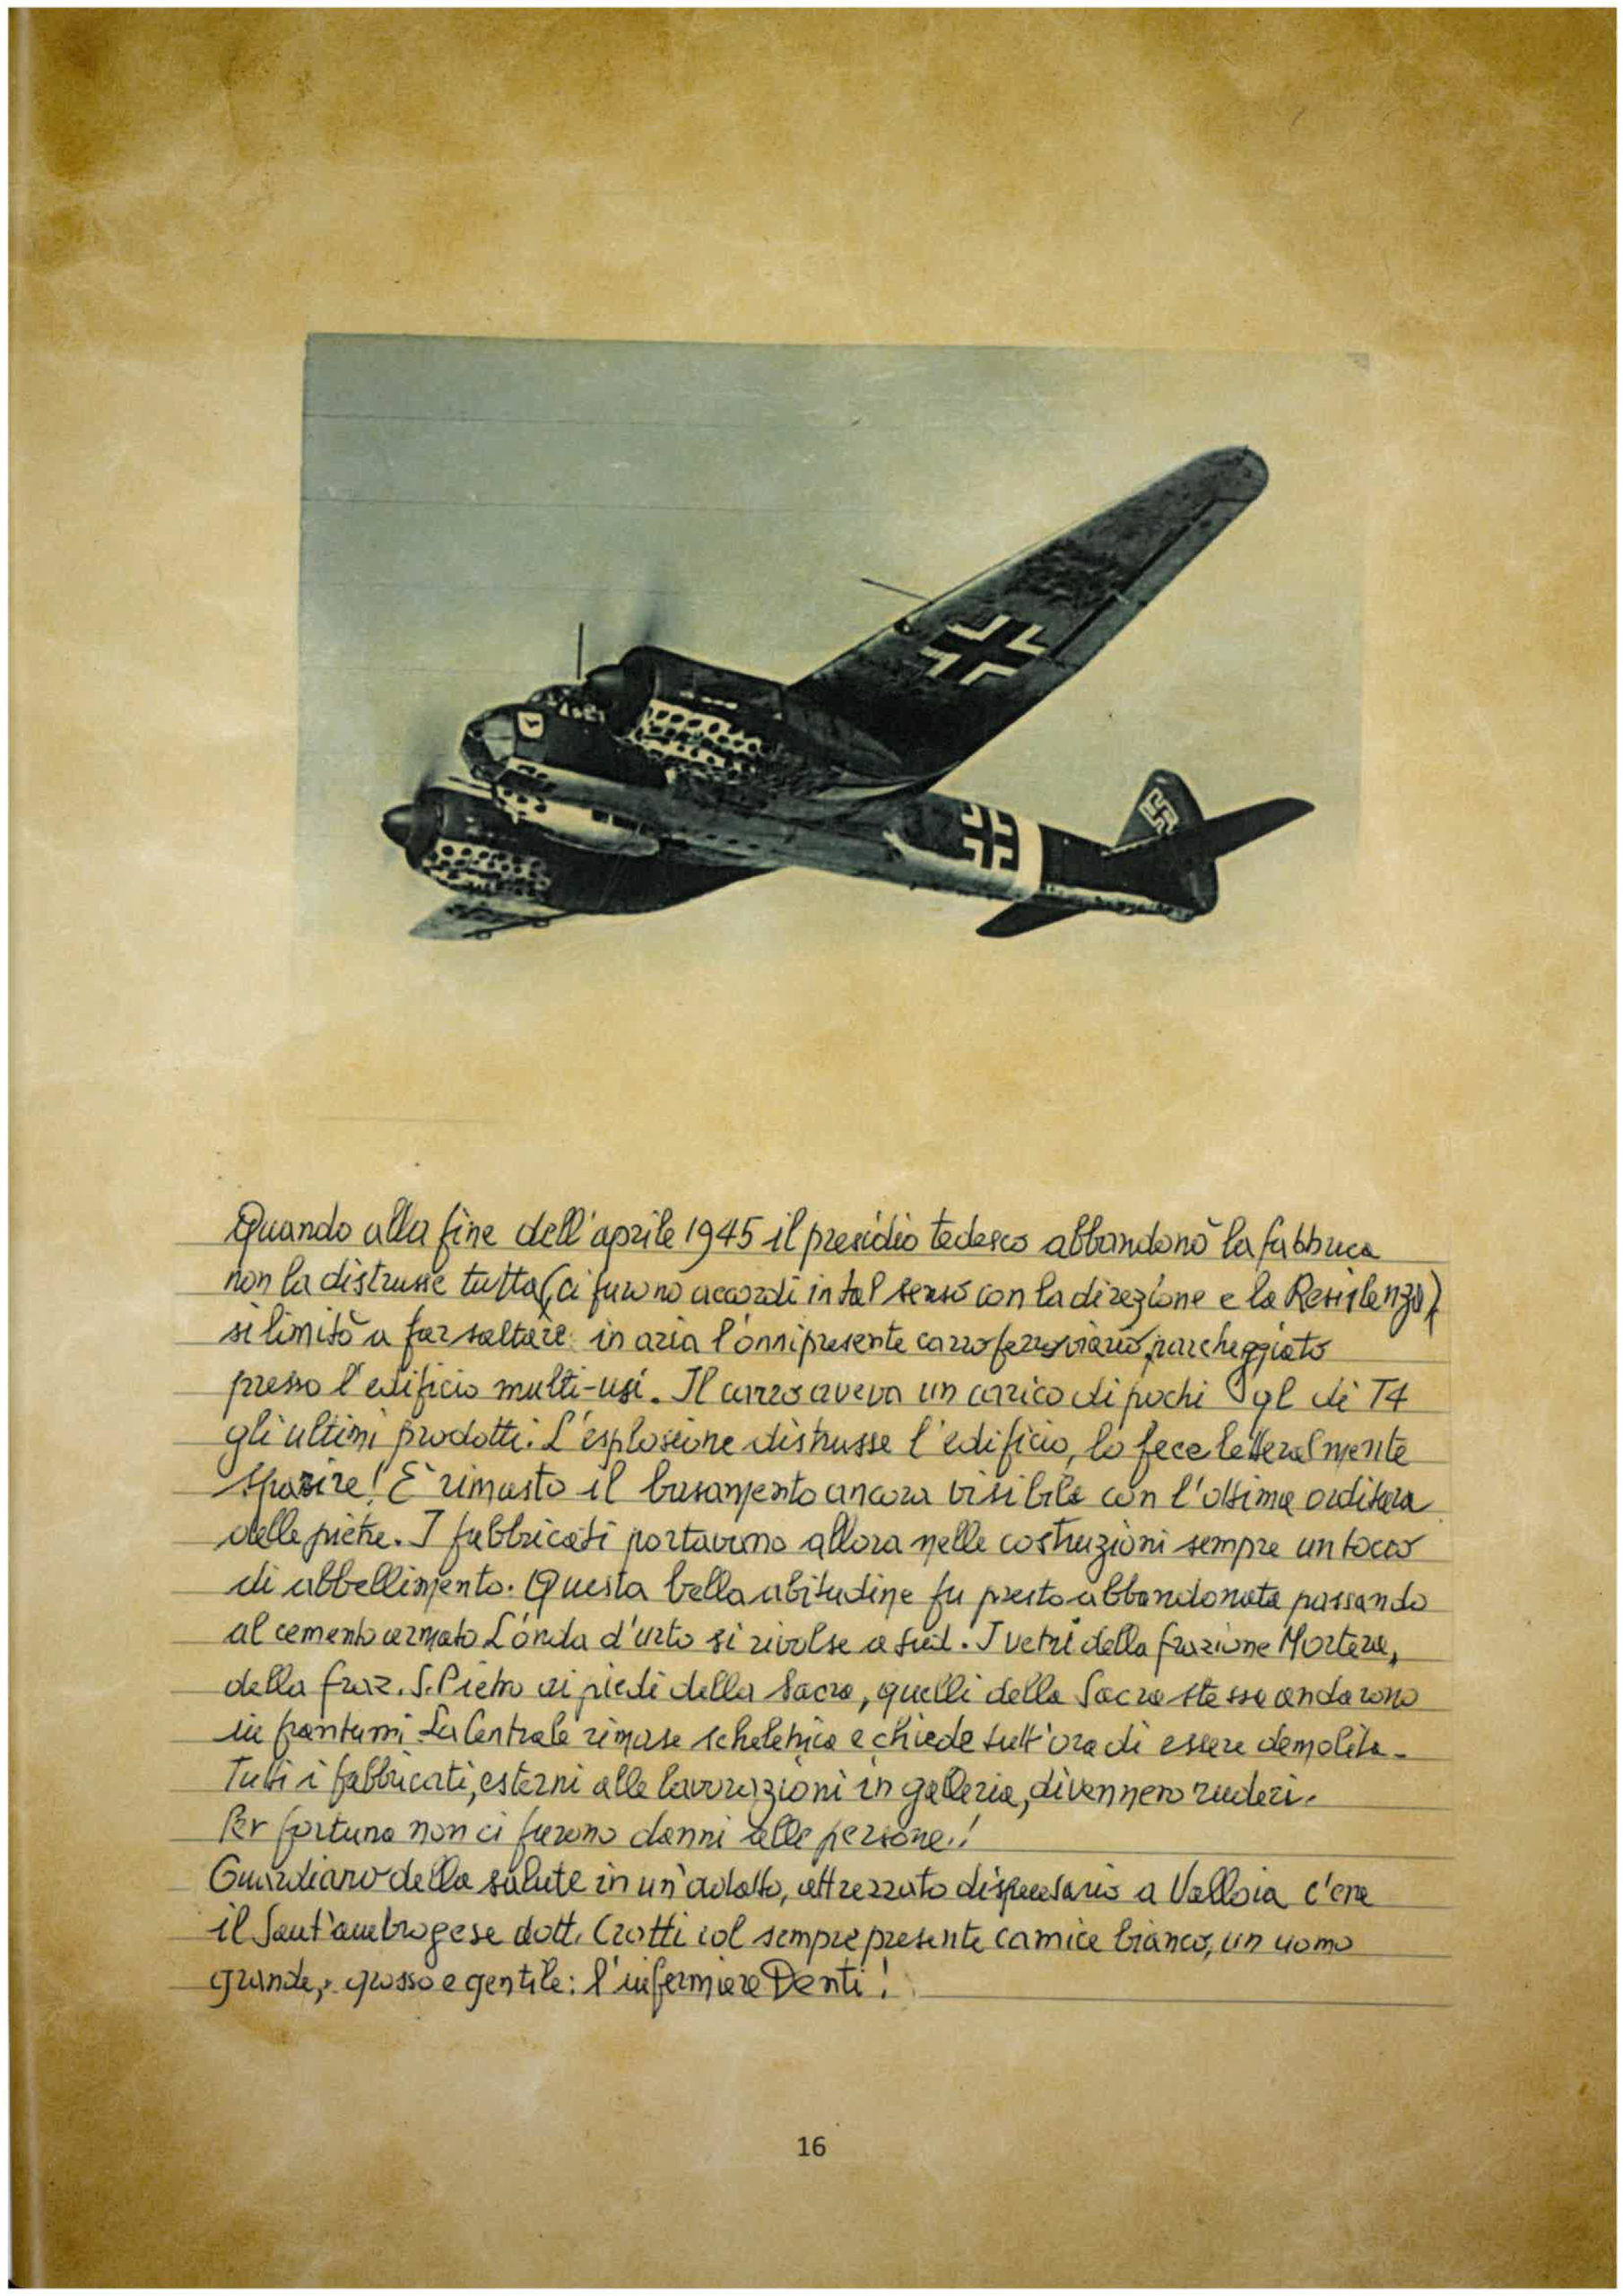 Quando alla fine dell'aprile 1945 il presidio tedesco abbandonò la fabbrica
non la distrusse tutta (ci furono accordi in tal senso con la direzione e la Resistenza)
si limitò a far saltare in aria l'onnipresente carro ferroviario parcheggiato
presso l'edificio multi-usi. Il carro aveva un carico di pochi Qgl di T4
gli ultimi prodotti. L'esplosione distrusse l'edificio, lo fece letteralmente
sparire! È rimasto il basamento ancora visibile con l'ottima orditura
delle pietre. I fabbricati portavano allora nelle costruzioni sempre un tocco
di abbellimento. Questa bella abitudine fu presto abbandonata passando
al cemento armato L'onda d'urto si rivolse a sud. I vetri della frazione Mortera,
della fraz. S. Pietro ai piedi della Sacra, quelli della Sacra stessa andarono
in frantumi La Centrale rimase scheletrica e chiede tutt'ora di essere demolita.
Tutti i fabbricati, esterni alle lavorazioni in galleria, divennero ruderi.
Per fortuna non ci furono danni alle persone.!
Guardiano della salute in un adatto, attrezzato dispensario a Valloia c'era
il Sant'ambrogese dott. Crotti col sempre presente camice bianco, un uomo
grande, grosso e gentile: l'infermiere Denti!
16